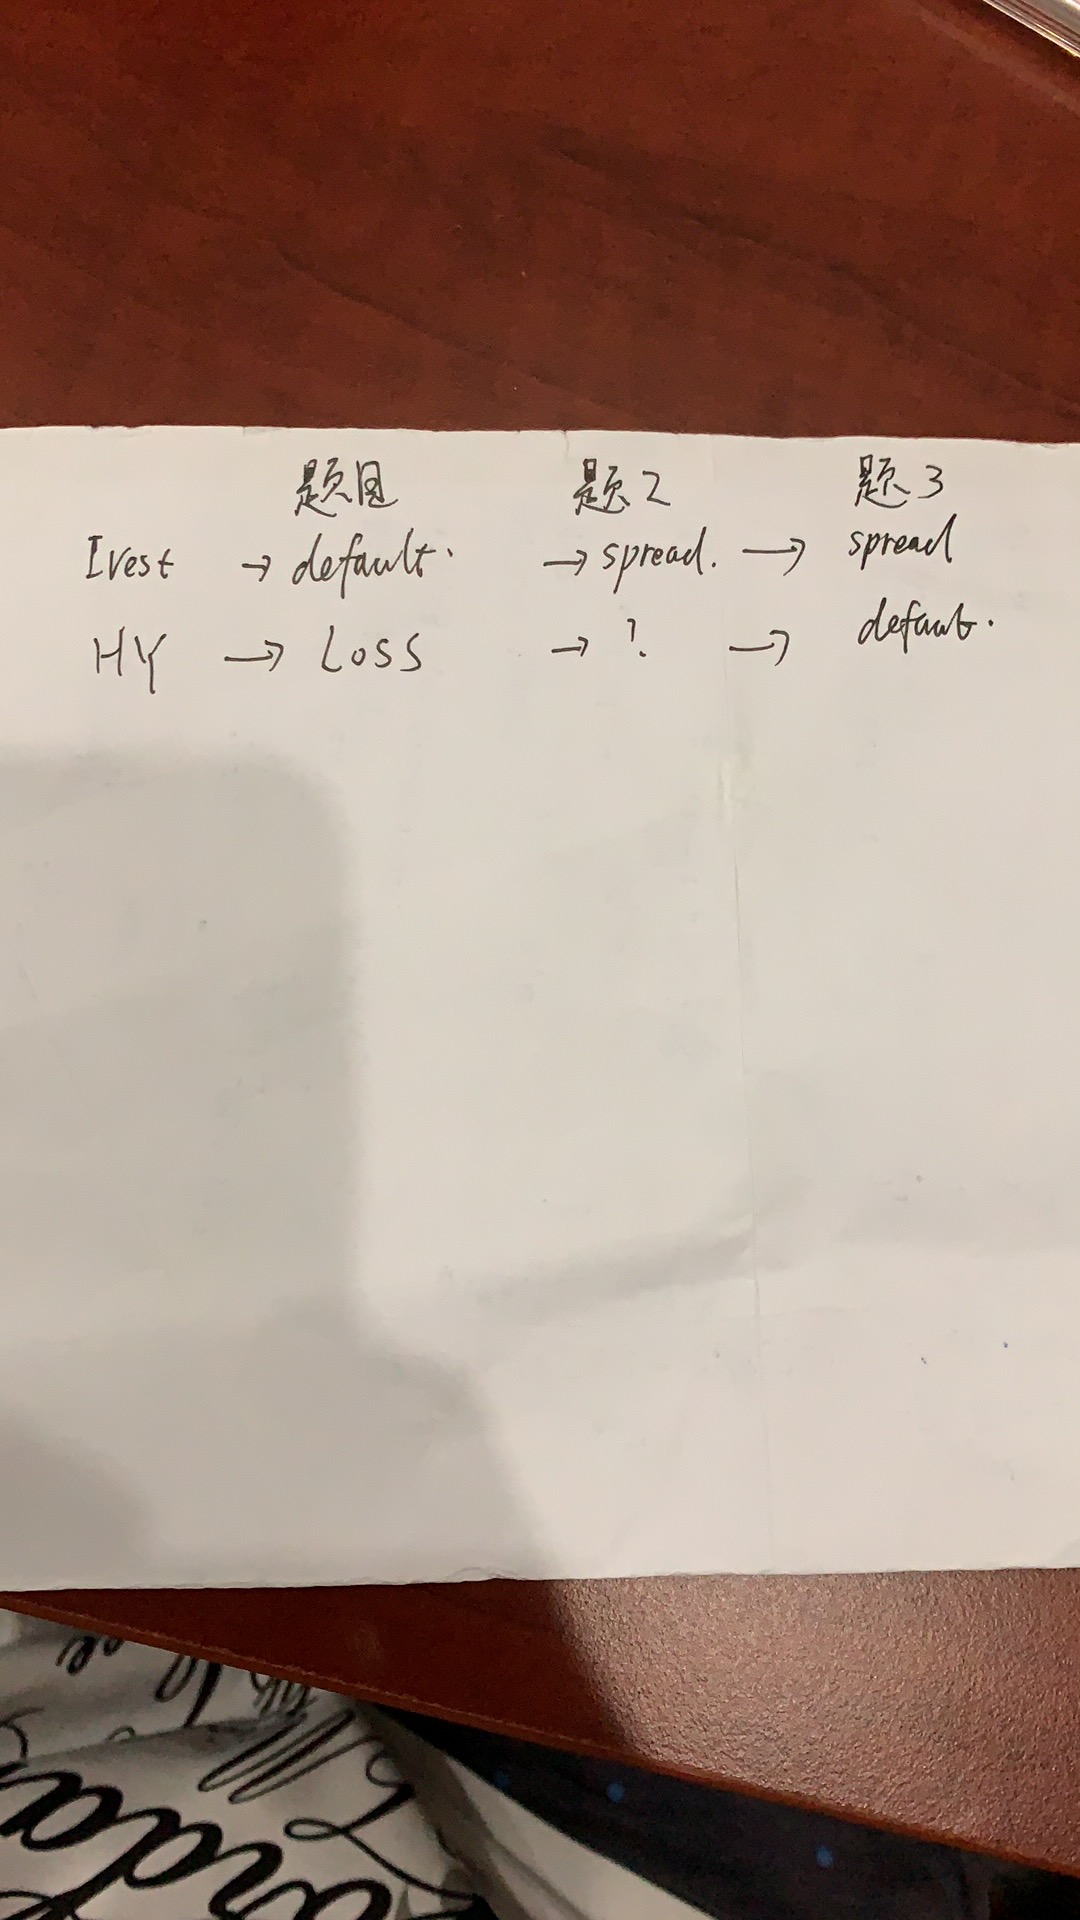 题目 题2 题3
Ivest → default. → spread. → spread
HY → Loss → ? → default.